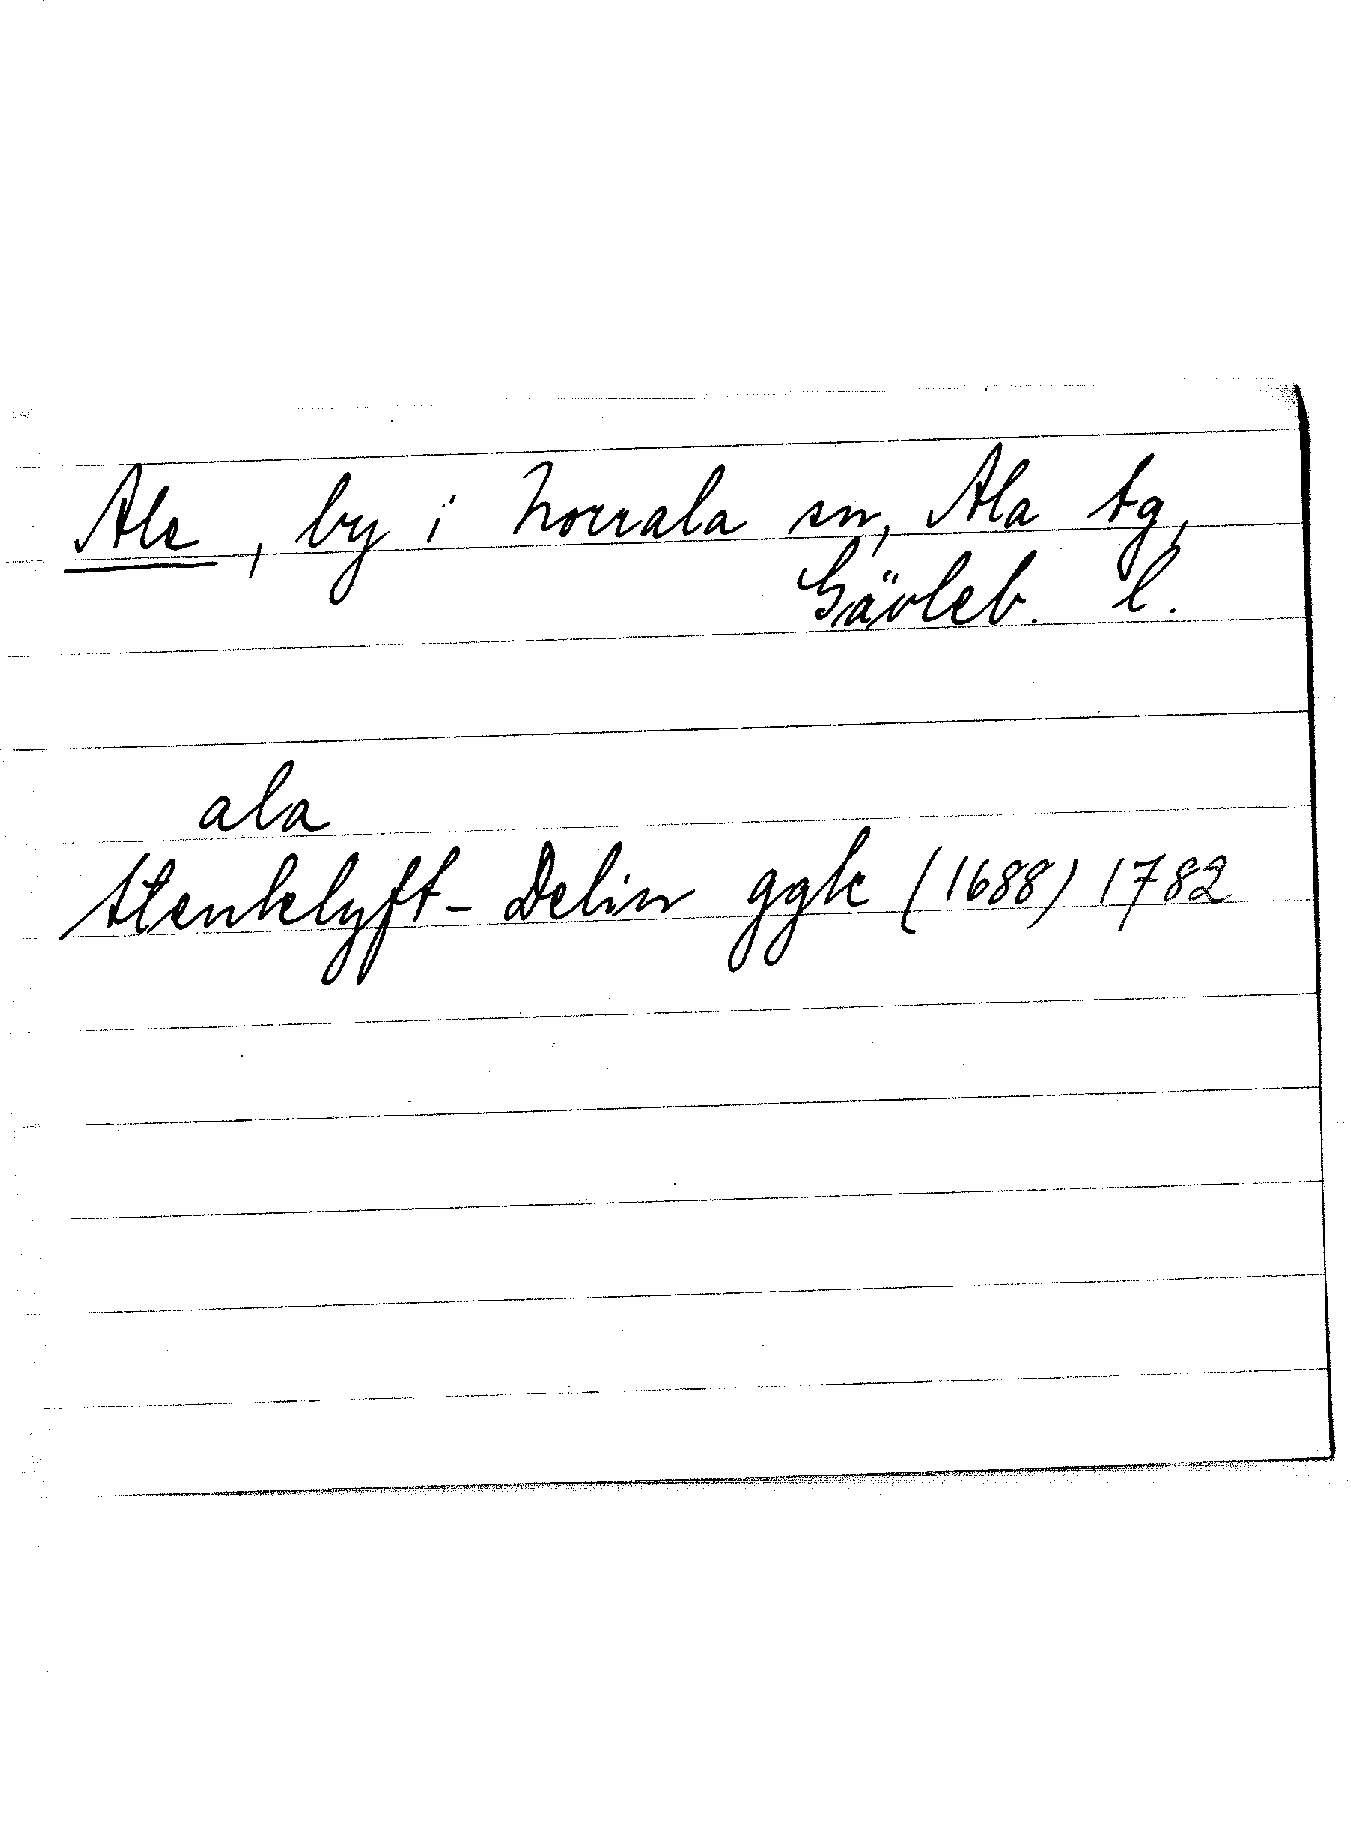 Ale, by i Norrala sn, Ala tg,
Gävleb. l.
ala
Stenklyft- Delin ggk (1688) 1782